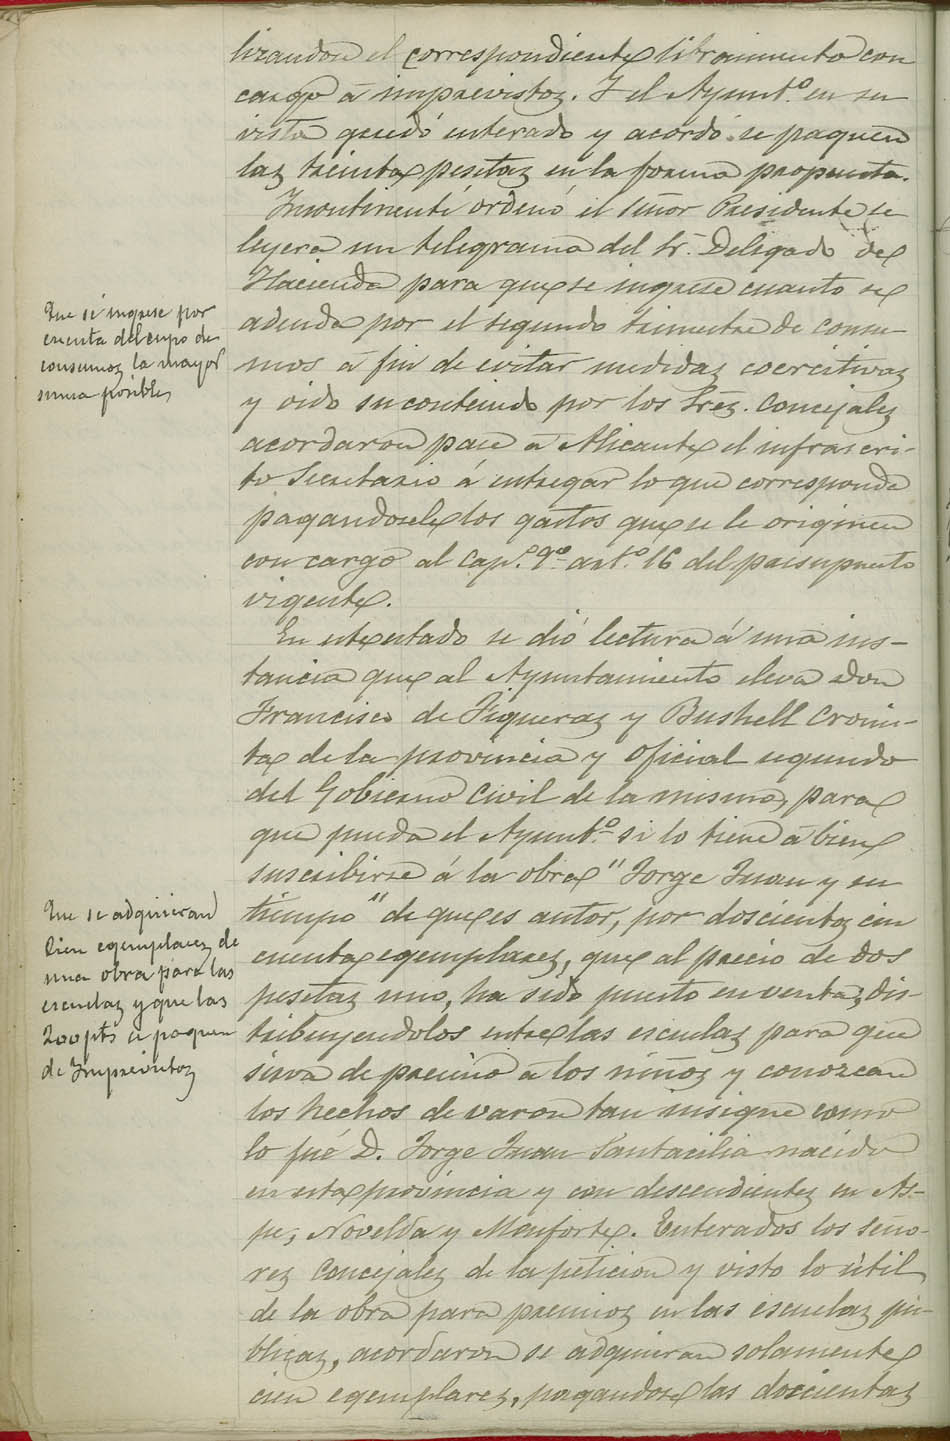 lizandose el correspondiente libramiento con
cargo á imprevistos. Y el Ayuntº. en su
vista quedó enterado y acordó se paguen
las treinta pesetas en la forma propuesta.
Incontinenti ordenó el señor Presidente se
leyera un telegrama del Sr. Delegado de
Hacienda para que se ingrese cuanto se
adeuda por el segundo trimestre de consu-
mos á fin de evitar medidas coercitivas
y oido su contenido por los Sres. Concejales
acordaron pase á Alicante el infrascri-
to Secretario á entregar lo que corresponda
pagandosele los gastos que se le originen
con cargo al Capº. 9º artº. 16 del presupuesto
vigente.
Que se ingrese por
cuenta del cupo de
consumos la mayor
suma posible
En este estado se dió lectura á una ins-
tancia que al Ayuntamiento eleva Don
Francisco de Figueras y Bushell Cronis-
ta de la provincia y Oficial segundo
del Gobierno Civil de la misma, para
que pueda el Ayuntº. si lo tiene á bien
suscribirse á la obra "Jorge Juan y su
tiempo" de que es autor, por doscientos cin
cuenta egemplares, que al precio de dos
pesetas uno, ha sido puesto en venta, dis-
tribuyendolos entre las escuelas para que
sirva de premio á los niños y conozcan
los hechos de varon tan insigne como
lo fué D. Jorge Juan Santacilia nacido
en esta provincia y con descendientes en As-
pe, Novelda y Monforte. Enterados los seño-
res Concejales de la peticion y visto lo útil
de la obra para premios en las escuelas pú-
blicas, acordaron se adquieran solamente
cien egemplares, pagandose las doscientas
Que se adquieran
cien egemplares de
una obra para las
escuelas y que las
200 pts se paguen
de Imprevistos